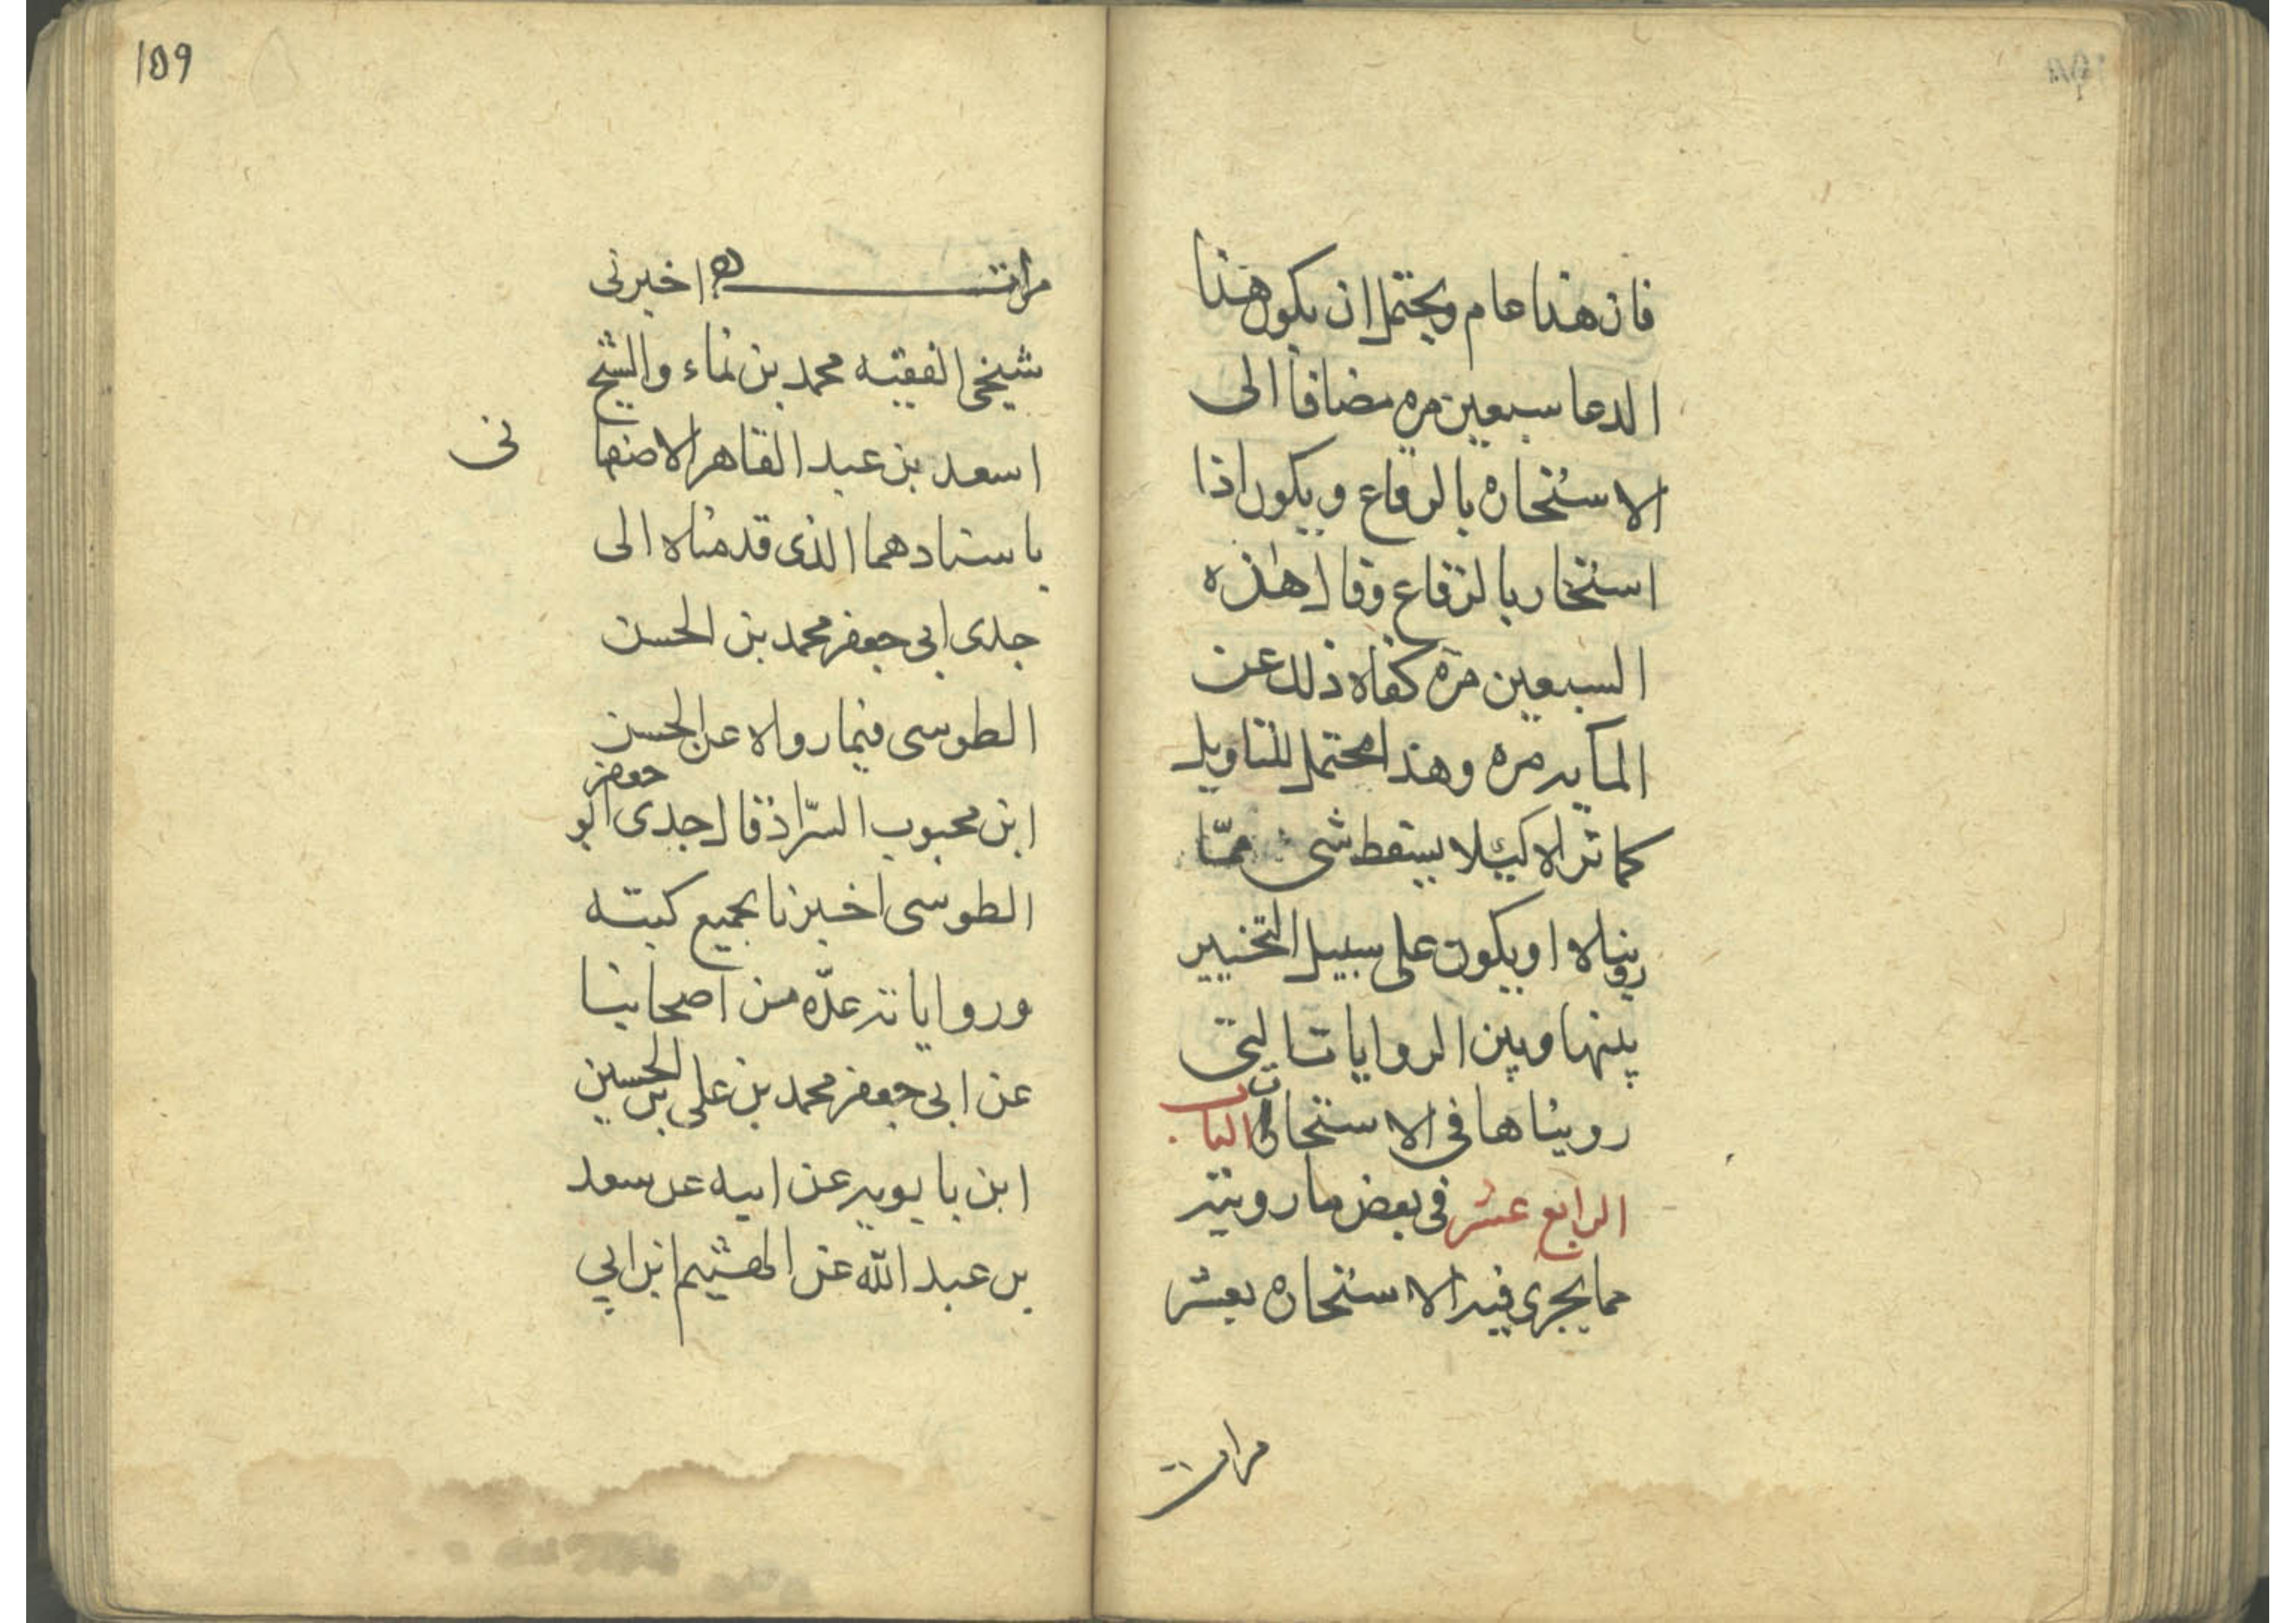 فان هذا عام ويحتمل ان يكون هذا
الدعا سبعين مره مضافا الى
الاستخاره بالرقاع ويكون اذا
استخار بالرقاع وقال هذه
السبعين مره كفاه ذلك عن
المايه مره وهذا محتمل للتاويل
كما تراه لكيلا يسقط شى مما
رويناه او يكون على سبيل التخيير
بينها وبين الروايات التى
رويناها فى الاستخارات الباب
الرابع عشر فى بعض ما رويته
مما يجرى فيه الاستخاره بعشر
مرات
159
مرات اخبرنى
شيخى الفقيه محمد بن نماء والشيخ
اسعد بن عبد القاهر الاصفهانى
باسنادهما الذى قدمناه الى
جدى ابى جعفر محمد بن الحسن
الطوسى فيما رواه عن الحسن
ابن محبوب السرّاد قال جدى ابو جعفر
الطوسى اخبرنا بجميع كتبه
ورواياته عدّه من اصحابنا
عن ابى جعفر محمد بن على بن الحسين
ابن بابويه عن ابيه عن سعد
بن عبد الله عن الهشيم ابن ابي